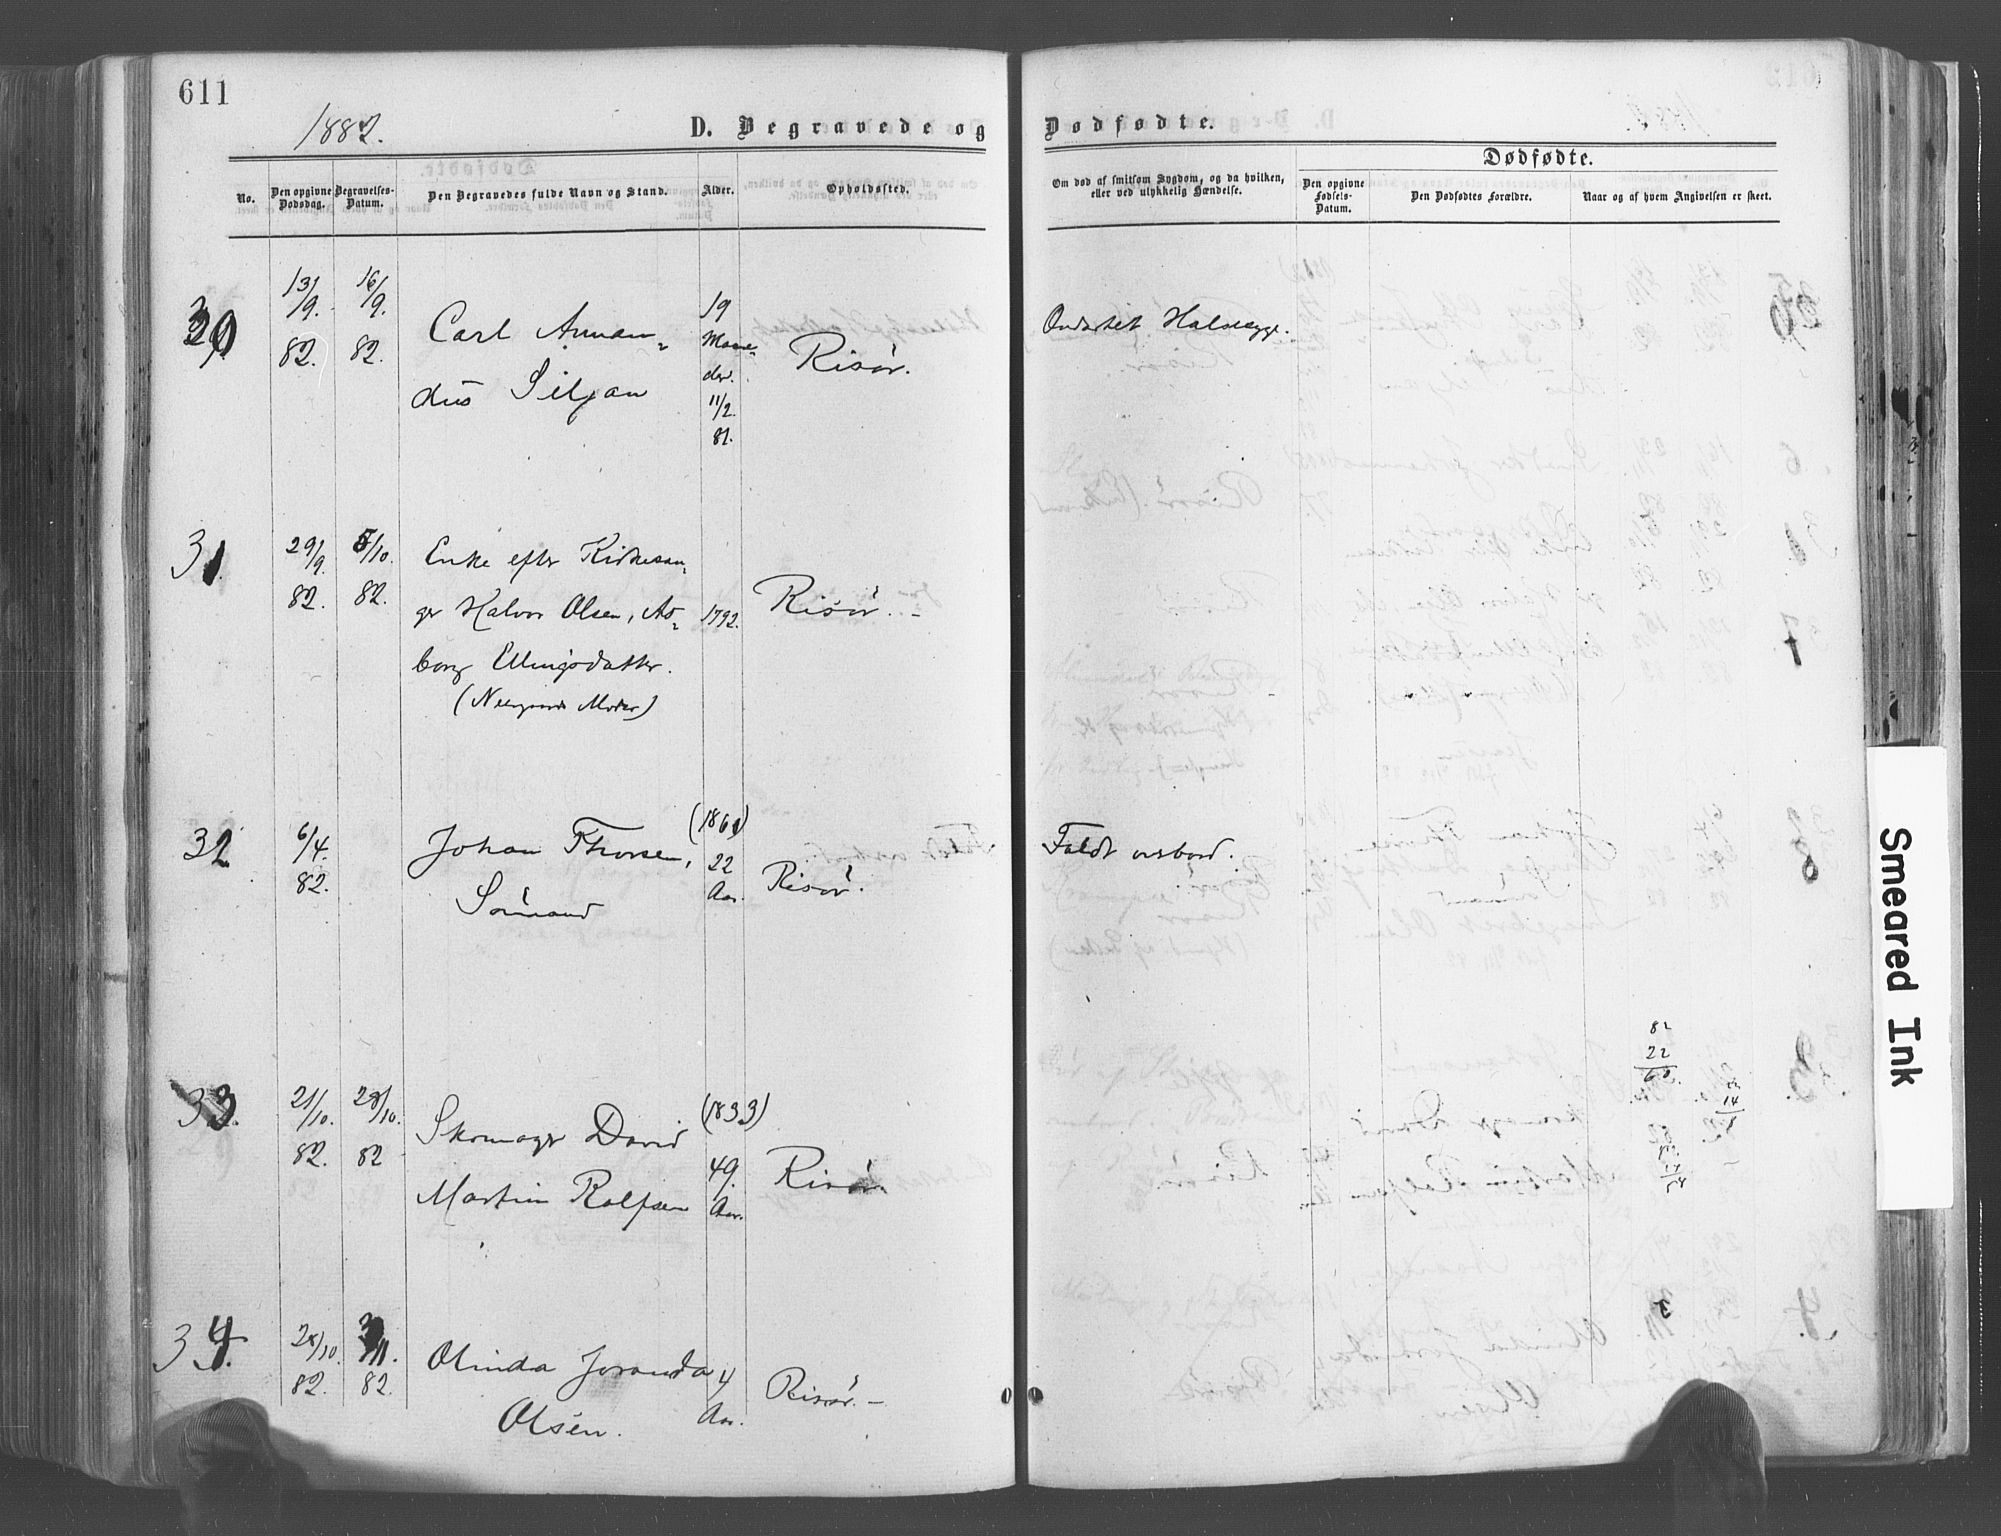 611
1882.
D. Begravede og Dødfødte.
Dødfødte.
No.
Den opgivne Dødsdag.
Begravelses-Datum.
Den Begravedes fulde Navn og Stand.
Alder.
Opholdssted.
Om død af smitsom Sygdom, og da hvilken, eller ved ulykkelig Hændelse.
Den opgivne Fødsels-Datum.
Den Dødfødtes Forældre.
Naar og af hvem Angivelsen er skeet.
30
13/9. 82.
16/9. 82.
Carl Aman-
dus Siljan
19
Maane-
der.
11/2.
81.
Risør.
Ondartet Halssyge.
31.
29/9. 82.
5/10. 82.
Enke efter Kirkesan-
ger Halvor Olsen, As-
borg Ellingsdatter.
(Neergaards Moder)
1792.
Risør.-
32
6/4. 82.
Johan Thorsen,
Sømand
(1860)
22
Aar.
Risør.
Faldt overbord.
33.
21/10. 82.
28/10. 82
Skomager David
Martin Rolfsen
(1833)
49.
Aar.
Risør
82
22
60.
14
34.
28/10. 82.
3/11. 82.
Olinda Joranda
Olsen.
4
Aar.
Risør.-
Smeared Ink